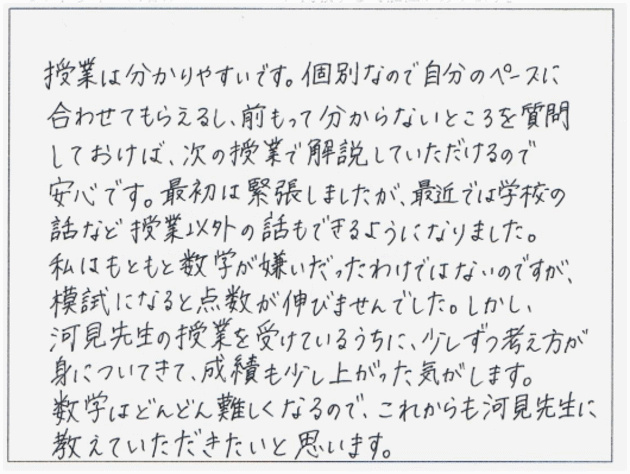 授業は分かりやすいです。個別なので自分のペースに
合わせてもらえるし、前もって分からないところを質問
しておけば、次の授業で解説していただけるので
安心です。最初は緊張しましたが、最近では学校の
話など授業以外の話もできるようになりました。
私はもともと数学が嫌いだったわけではないのですが、
模試になると点数が伸びませんでした。しかし、
河見先生の授業を受けているうちに、少しずつ考え方が
身についてきて、成績も少し上がった気がします。
数学はどんどん難しくなるので、これからも河見先生に
教えていただきたいと思います。